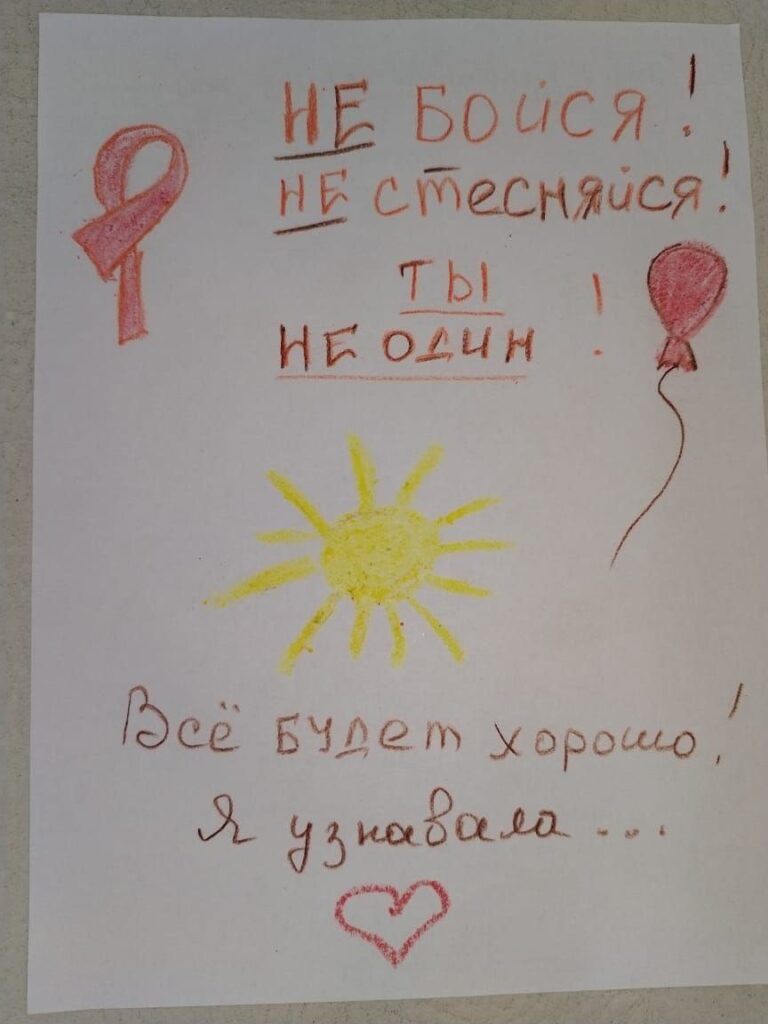 НЕ БОЙСЯ!
НЕ СТЕСНЯЙСЯ!
ТЫ
НЕ ОДИН !
Всё будет хорошо!
Я узнавала...